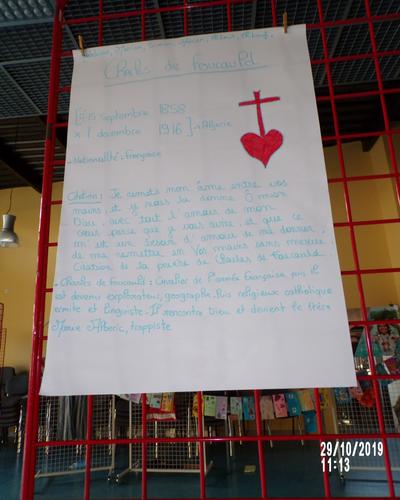 Charles de Foucauld
15 septembre 1858
x 1 décembre 1916 ]→Algérie
• Nationalité : Française
Citation : Je remets mon âme entre vos
mains, et je vous la donne Ô mon
Dieu, avec tout l'amour de mon
cœur parce que je vous aime, et que ce
m'est un besoin d'amour de me donner,
de me remettre en Vos mains sans mesure.
Citation de la prière de Charles de Foucauld.
• Charles de Foucauld : Cavalier de l'armée française puis il
est devenu explorateur, géographe. Puis religieux catholique
ermite et linguiste. Il rencontre Dieu et devient le frère
Marie Alberic, trappiste
29/10/2019
11:13